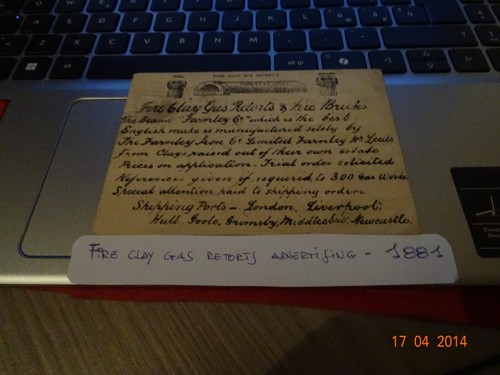 FIRE CLAY GAS RETORTS
Fire Clay Gas Retorts & Fire Bricks
The Brand "Farnley Co" which is the best
English make is manufactured solely by
The Farnley Iron Co Limited Farnley Nr Leeds
from Clays raised out of their own estate
Prices on application. Trial order solicited
References given if required to 300 Gas Works
Special attention paid to shipping orders
Shipping Ports - London, Liverpool,
Hull, Goole, Grimsby, Middlesbro', Newcastle.
FIRE CLAY GAS RETORTS ADVERTISING - 1881
17 04 2014